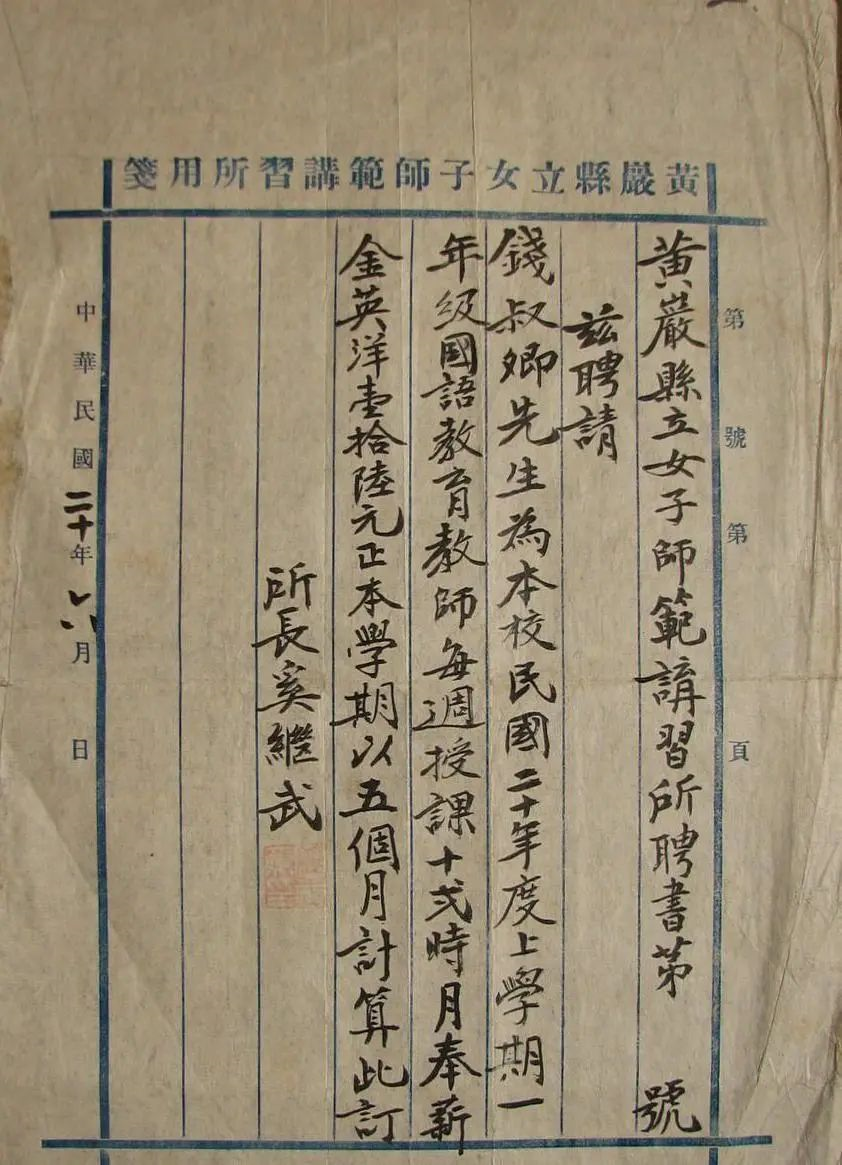 黃巖縣立女子師範講習所用箋
第 號第 頁
黃巖縣立女子師範講習所聘書第 號
茲聘請
錢叔卿先生為本校民國二十年度上學期一
年級國語教育教師每週授課十弍時月奉薪
金英洋壹拾陸元正本學期以五個月計算此訂
所長奚繼武
中華民國二十年六月 日